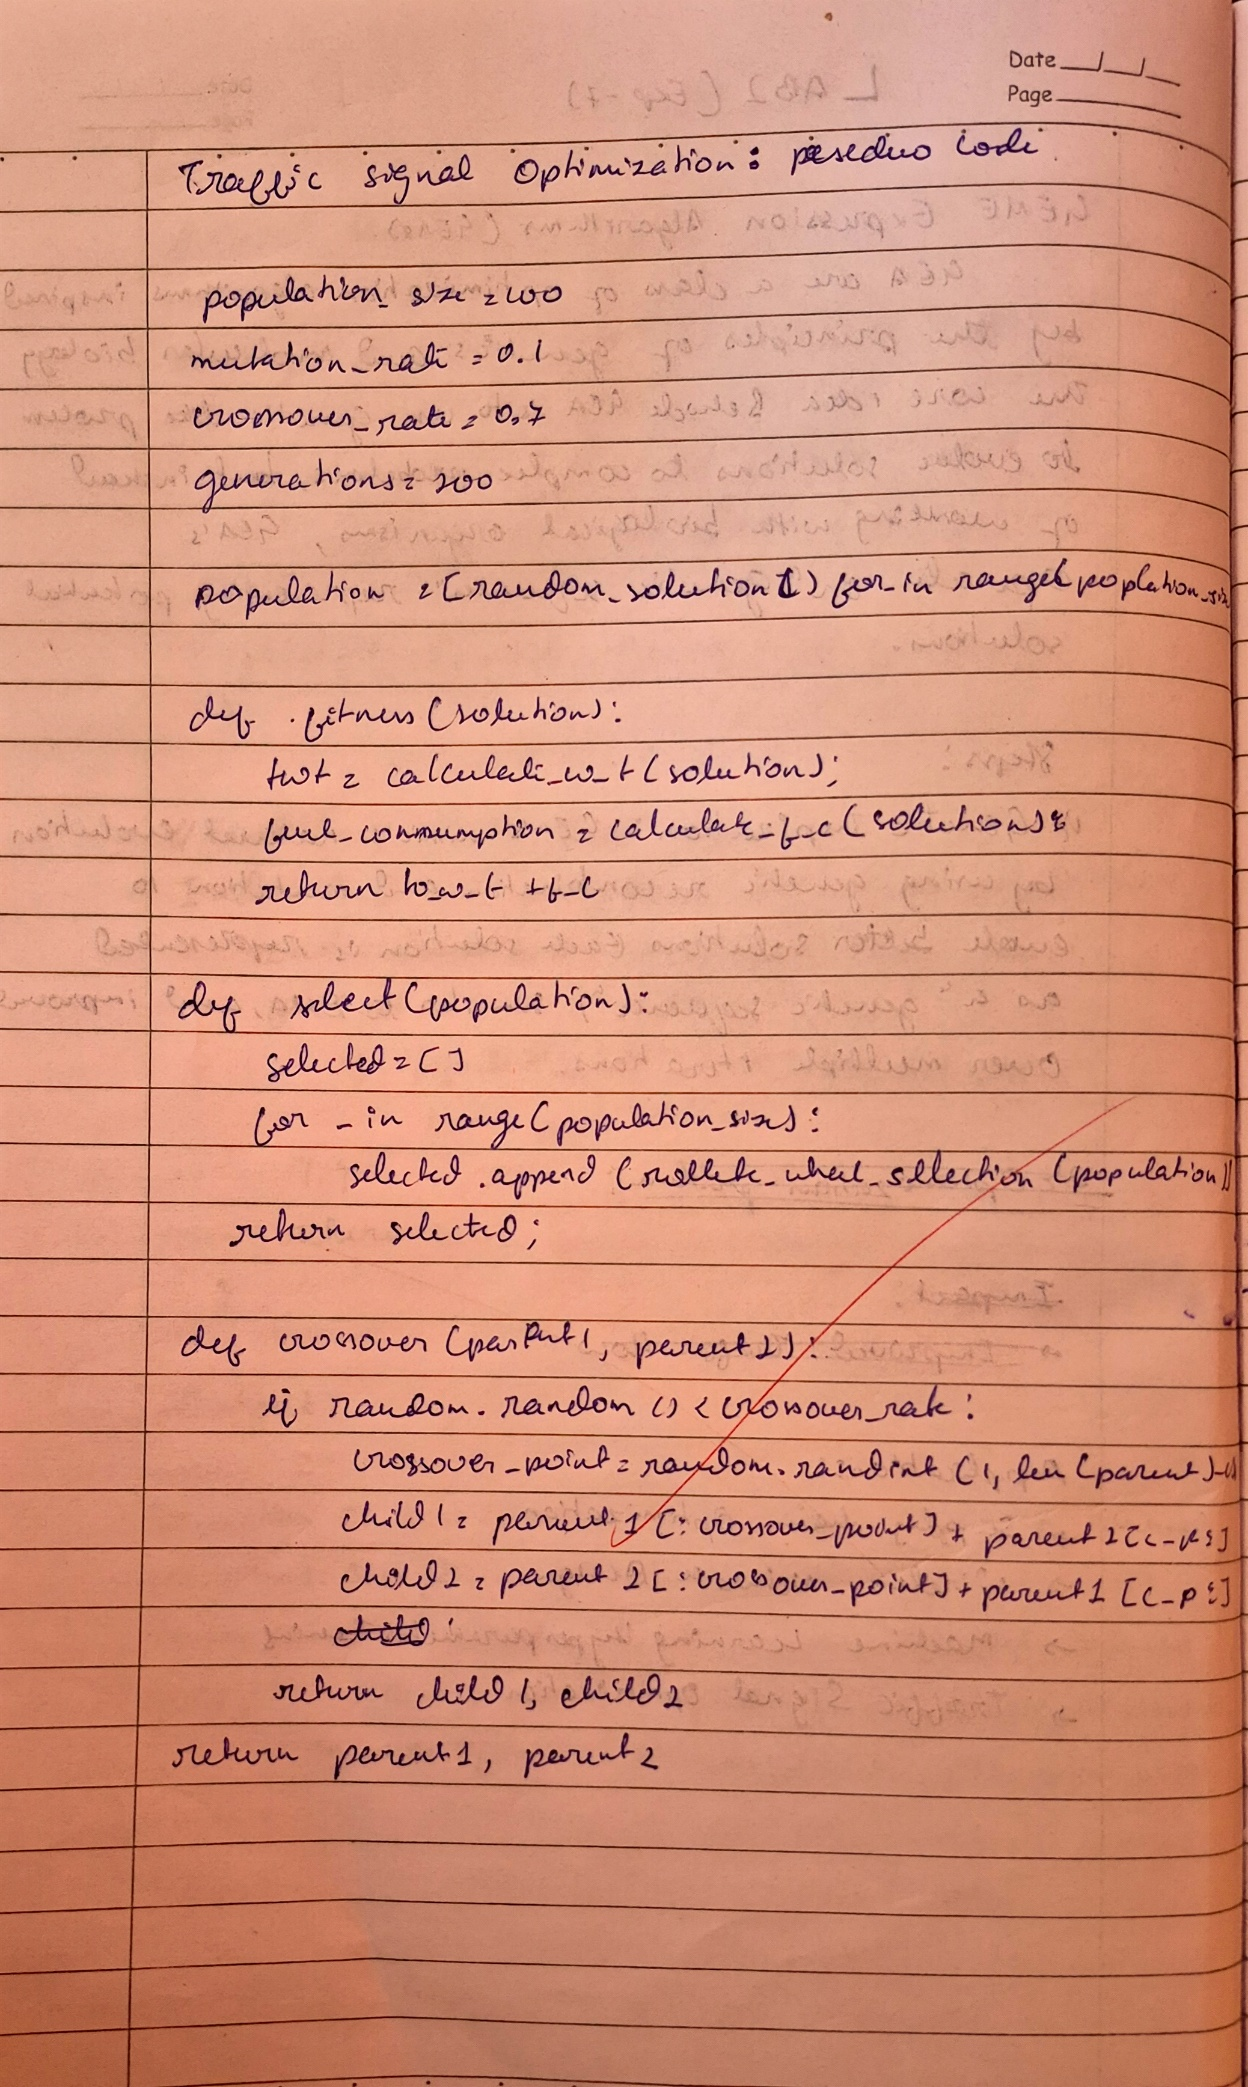 Date
Page
Traffic signal Optimization: pseduo Code
population_size = 100
mutation_rate = 0.1
crossover_rate = 0.7
generations = 100
population = [random_solution() for_in range(poplation_size
def fitness (solution):
twt = calculate_w_t (solution);
fuel_consumption = calculate_f_c (solution);
return to_w_t + f_c
def select (population):
selected = []
for _ in range (population_size):
selected.append (rollete_wheel_sellection (population))
return selected;
def crossover (parent1, parent2):
if random.random () < crossover_rate:
crossover_point = random.randint (1, len (parent)-1)
child1 = parent1 [:crossover_point] + parent2 [c_p:]
child2 = parent2 [:crossover_point] + parent1 [c_p:]
return child1, child2
return parent1, parent2